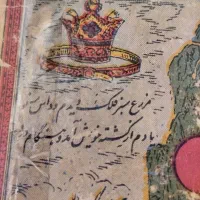 مزرع سبز فلک دیدم و داس
یادم از کشته خویش آمد و هنگام